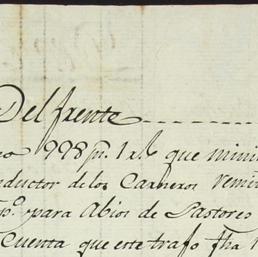 Del frente
998 p.s 1 r.l que mini
nductor de los Carneros remi
p.o para Abios de Pastores
Cuenta que este trajo fha